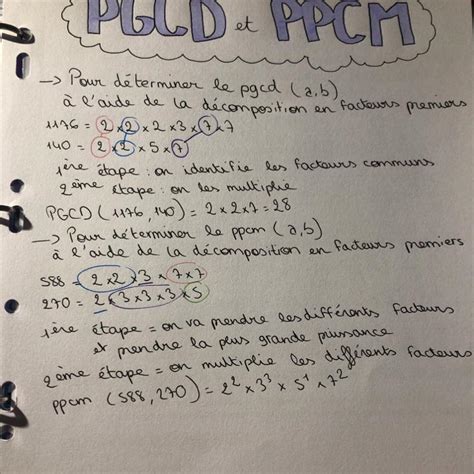 PGCD et PPCM
→ Pour déterminer le pgcd (a,b)
à l'aide de la décomposition en facteurs premiers
1176 = 2 x 2 x 2 x 3 x 7 x 7
140 = 2 x 2 x 5 x 7
1ère étape : on identifie les facteurs communs
2ème étape : on les multiplie
PGCD (1176, 140) = 2 x 2 x 7 = 28
→ Pour déterminer le ppcm (a,b)
à l'aide de la décomposition en facteurs premiers
588 = 2 x 2 x 3 x 7 x 7
270 = 2 x 3 x 3 x 3 x 5
1ère étape = on va prendre les différents facteurs
et prendre la plus grande puissance
2ème étape = on multiplie les différents facteurs
ppcm (588, 270) = 2² x 3³ x 5¹ x 7²